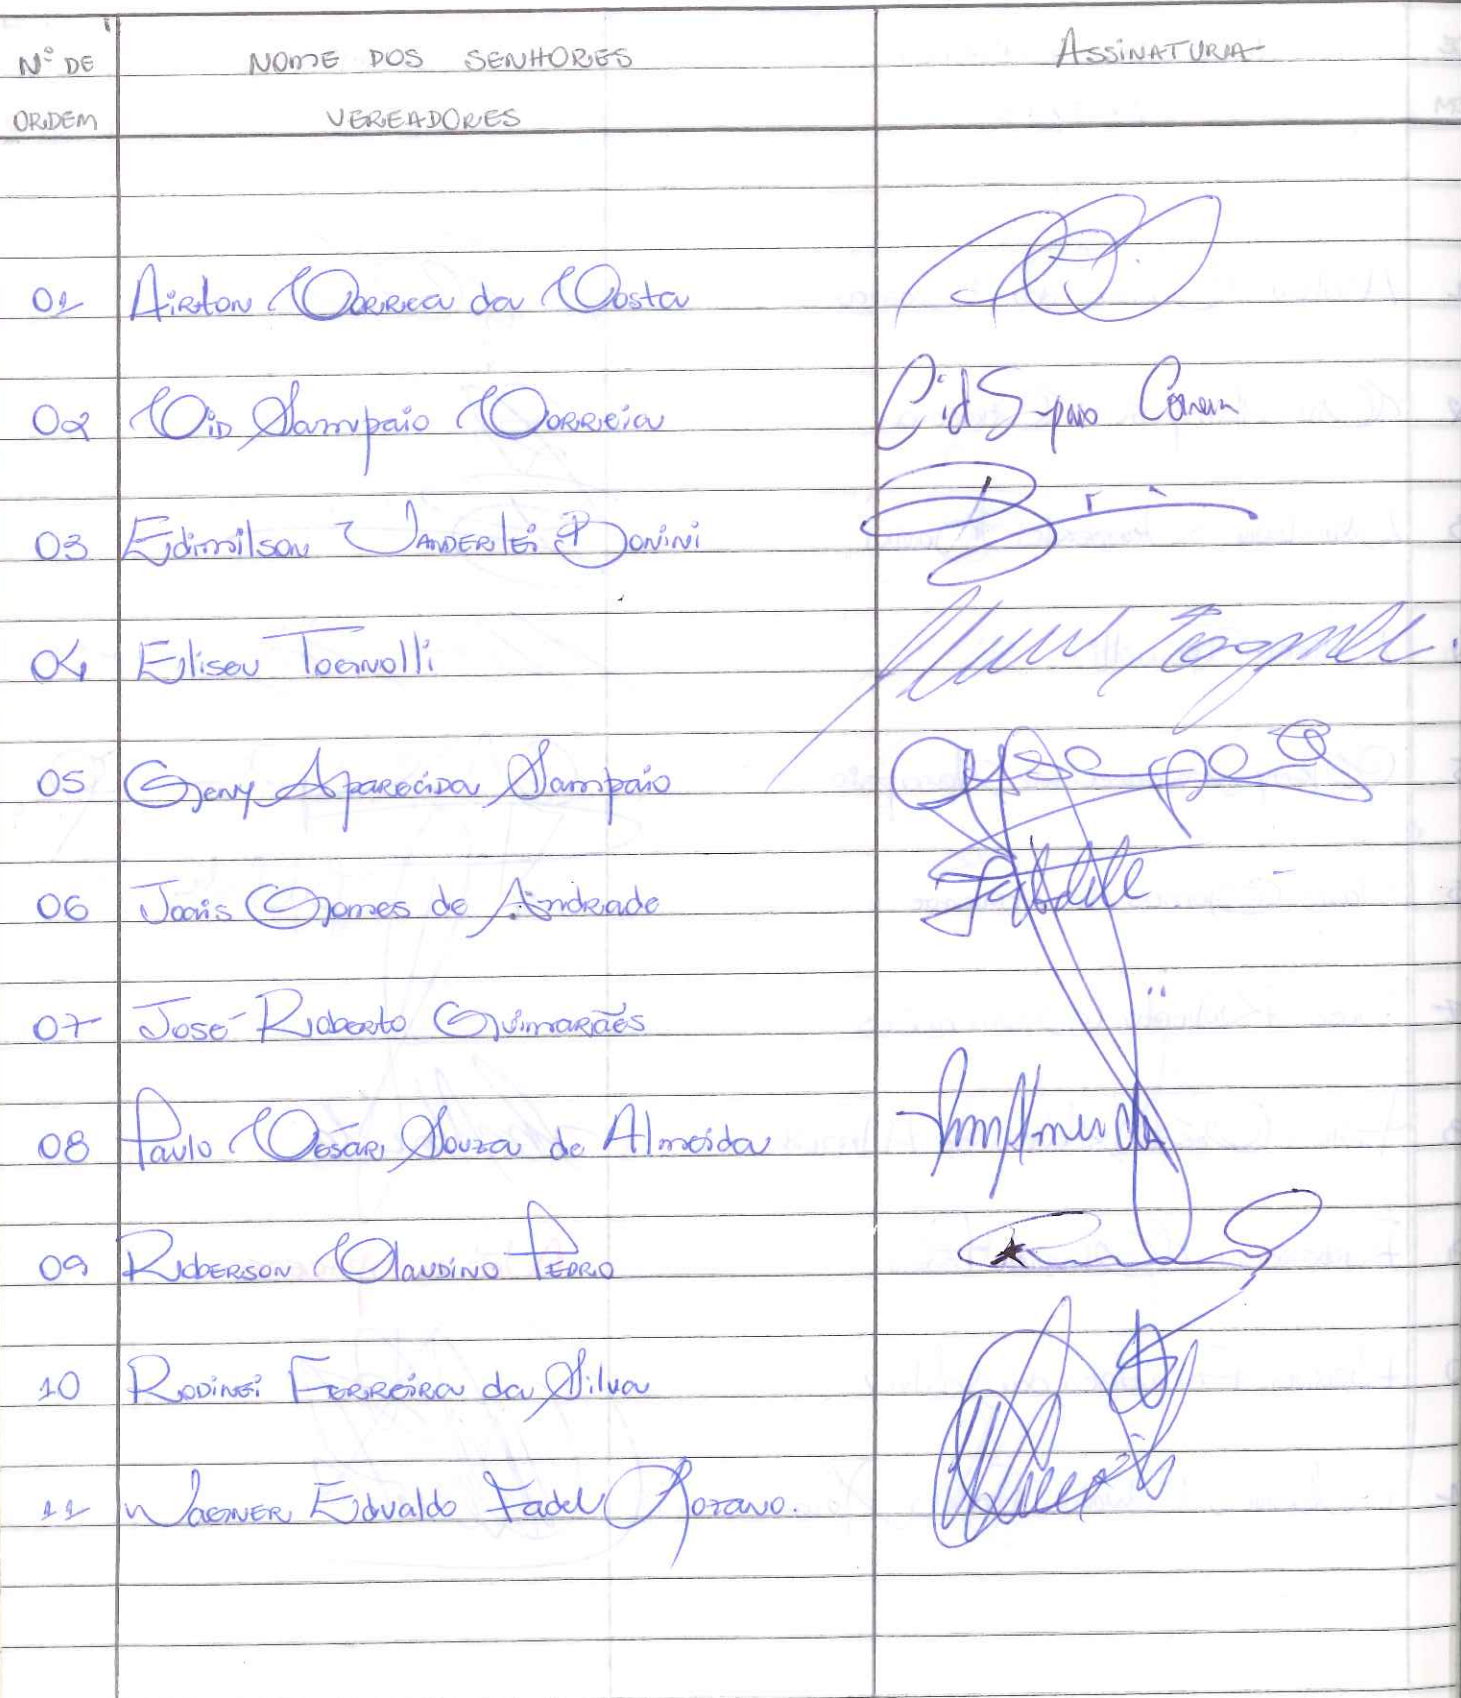 Nº DE NOME DOS SENHORES ASSINATURA
ORDEM VEREADORES
01 Airton Correa da Costa
02 Cid Sampaio Correia Cid Sampaio Correia
03 Edimilson Vanderlei Bonini
04 Eliseu Tognolli
05 Geny Aparecida Sampaio
06 Joais Gomes de Andrade
07 José Roberto Guimarães
08 Paulo César Souza de Almeida
09 Roberson Claudino Pedro
10 Rodinei Ferreira da Silva
11 Wagner Edvaldo Fadel Lozano.